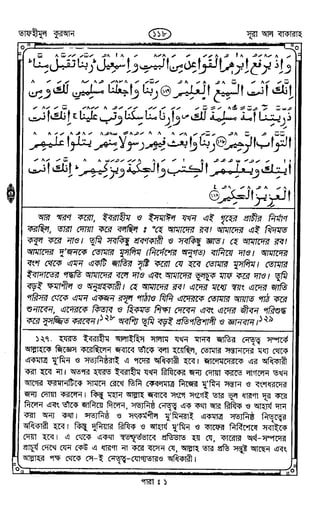 তাফহীমুল কুরআন
১১৮
সূরা আল বাকারাহ
وَإِذْ يَرْفَعُ إِبْرٰهٖمُ الْقَوَاعِدَ مِنَ الْبَيْتِ وَإِسْمٰعِيْلُ رَبَّنَا تَقَبَّلْ مِنَّا
إِنَّكَ أَنْتَ السَّمِيْعُ الْعَلِيْمُ رَبَّنَا وَاجْعَلْنَا مُسْلِمَيْنِ لَكَ وَمِنْ
ذُرِّيَّتِنَا أُمَّةً مُّسْلِمَةً لَّكَ وَأَرِنَا مَنَاسِكَنَا وَتُبْ عَلَيْنَا إِنَّكَ أَنْتَ
التَّوَّابُ الرَّحِيْمُ رَبَّنَا وَابْعَثْ فِيْهِمْ رَسُوْلًا مِّنْهُمْ يَتْلُوْا عَلَيْهِمْ
اٰيٰتِكَ وَيُعَلِّمُهُمُ الْكِتٰبَ وَالْحِكْمَةَ وَيُزَكِّيْهِمْ إِنَّكَ أَنْتَ
الْعَزِيْزُ الْحَكِيْمُ
আর স্মরণ করো, ইবরাহীম ও ইসমাঈল যখন এই গৃহের প্রাচীর নির্মাণ
করছিল, তারা দোয়া করে বলছিল : "হে আমাদের রব! আমাদের এই খিদমত
কবুল করে নাও। তুমি সবকিছু শ্রবণকারী ও সবকিছু জ্ঞাত। হে আমাদের রব!
আমাদের দু'জনকে তোমার মুসলিম (নির্দেশের অনুগত) বানিয়ে দাও। আমাদের
বংশ থেকে এমন একটি জাতির সৃষ্টি করো যে হবে তোমার মুসলিম। তোমার
ইবাদাতের পদ্ধতি আমাদের বলে দাও এবং আমাদের ভুলচুক মাফ করে দাও। তুমি
বড়ই ক্ষমাশীল ও অনুগ্রহকারী। হে আমাদের রব! এদের মধ্যে স্বয়ং এদের জাতি
পরিসর থেকে এমন একজন রসূল পাঠাও যিনি এদেরকে তোমার আয়াত পাঠ করে
শুনাবেন, এদেরকে কিতাব ও হিকমত শিক্ষা দেবেন এবং এদের জীবন পরিশুদ্ধ
করে সুসজ্জিত করবেন।১২৮ অবশ্যি তুমি বড়ই প্রতিপত্তিশালী ও জ্ঞানবান।১২৯
১২৭. হযরত ইবরাহীম আলাইহিস সালাম যখন মানব জাতির নেতৃত্ব সম্পর্কে
আল্লাহকে জিজ্ঞেস করেছিলেন জবাবে তাঁকে বলা হয়েছিল, তোমার সন্তানদের মধ্য থেকে
একমাত্র মু'মিন ও সত্যনিষ্ঠরাই এ পদের অধিকারী হবে। জালেমদেরকে এর অধিকারী
করা হবে না। অতপর হযরত ইবরাহীম যখন রিযিকের জন্য দোয়া করতে লাগলেন তখন
আগের ফরমানটিকে সামনে রেখে তিনি কেবলমাত্র নিজের মু'মিন সন্তান ও বংশধরদের
জন্য দোয়া করলেন। কিন্তু মহান আল্লাহ জবাবে সংগে সংগেই তার ভুল ধারণা দূর করে
দিলেন এবং তাঁকে জানিয়ে দিলেন, সত্যনিষ্ঠ নেতৃত্ব এক কথা আর রিযিক ও আহার্য দান
করা অন্য কথা। সত্যনিষ্ঠ ও সৎকর্মশীল মু'মিনরাই একমাত্র সত্যনিষ্ঠ নিতৃত্বের
অধিকারী হবে। কিন্তু দুনিয়ার রিযিক ও আহার্য মু'মিন ও কাফের নির্বিশেষে সবাইকে
দেয়া হবে। এ থেকে একথা স্বতস্ফূর্তভাবে প্রতিভাত হয় যে, কারোর অর্থ-সম্পদের
প্রাচুর্য দেখে যেন কেউ এ ধারণা না করে বসেন যে, আল্লাহ তার প্রতি সন্তুষ্ট আছেন এবং
আল্লাহর পক্ষ থেকে সে-ই নেতৃত্ব-যোগ্যতারও অধিকারী।
পারা : ১